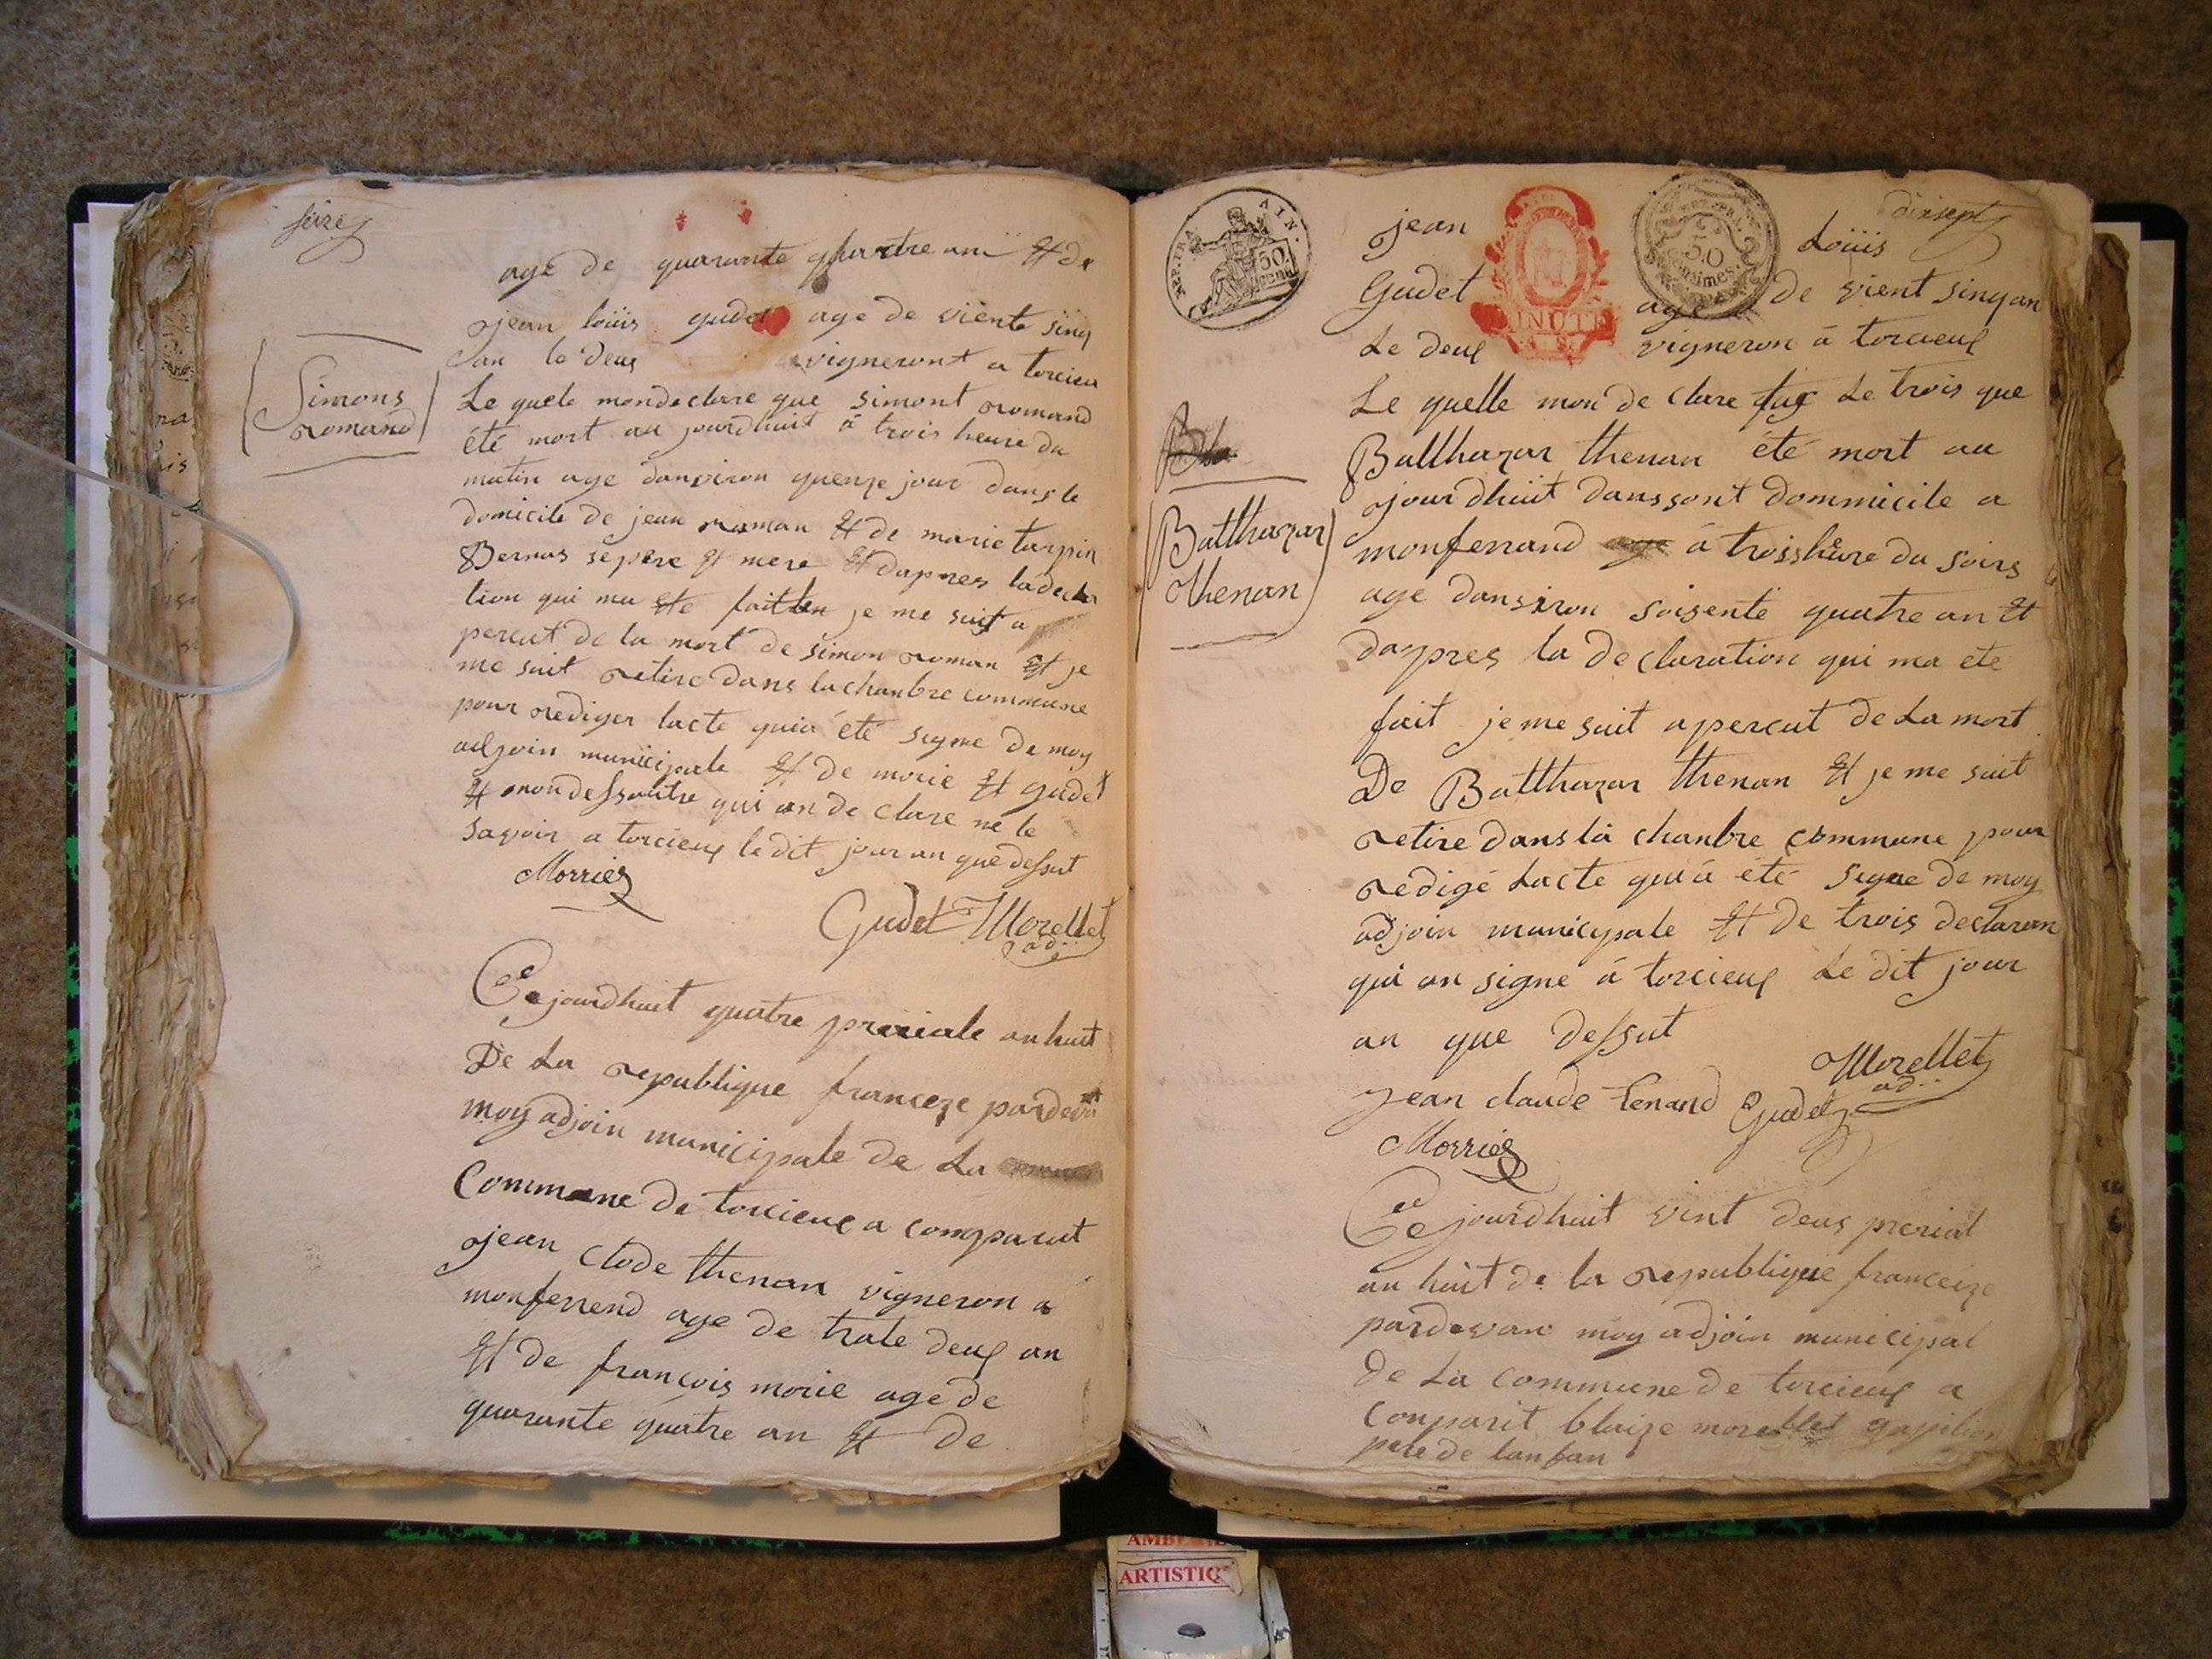 seize
agé de quarante quartre an Et de
jean loüis gudet age de viente sinq
an le deus vigneront a torcieu
Simons
romand
Le quele mondeclare que simont romand
été mort au jourdhuit à trois heure du
matin age danviron quenze jour dans le
domicile de jean roman Et de marie turpin
Bernas se père Et mere Et dapres la decla
tion qui ma ete fait je me suit a
percut de la mort de simon roman Et je
me suit retire dans la chanbre commune
pour rediger lacte quia été signe de moy
adjoin municipale Et de morie Et gudet
Et non dessautre qui on de clare ne le
savoir a torcieux le dit jour an que dessut
Morriez
Gudet Morellet
adj
Cejourdhuit quatre preriale an huit
De La republique franceze pardevan
moy adjoin municipale de La
Commune de torcieux a comparut
jean clode thenan vigneron a
monferrend age de trate deux an
Et de françois morie age de
quarante quatre an Et de
dixsept
APP. FRA. AIN.
50 cent
MINUTE
50 centimes
jean Loüis
Gudet age de vient sinq an
Le deux vigneron à torcieux
Le quelle mon de clare Le trois que
Balthazar thenan été mort au
jour dhüit dans sont dommicile a
Balthazar
thenan
monferrand à trois hüre du soirs
age danviron soisente quatre an Et
dapres la declaration qui ma ete
fait je me suit apercut de La mort
De Balthazar thenan Et je me suit
retire dans la chanbre commune pour
redigé Lacte qui à été signe de moy
adjoin municypale Et de trois declaran
qui on signe à torcieux Le dit jour
an que dessut
Morellet
adj
jean claude tenand Gudet
Morriez
Cejourdhuit vint deus prerial
an huit de la republique franceize
pardevan moy adjoin municipal
de La commune de torcieux a
conparit blaize morellet
pere de lanfan
AMBERIE
ARTISTIQ